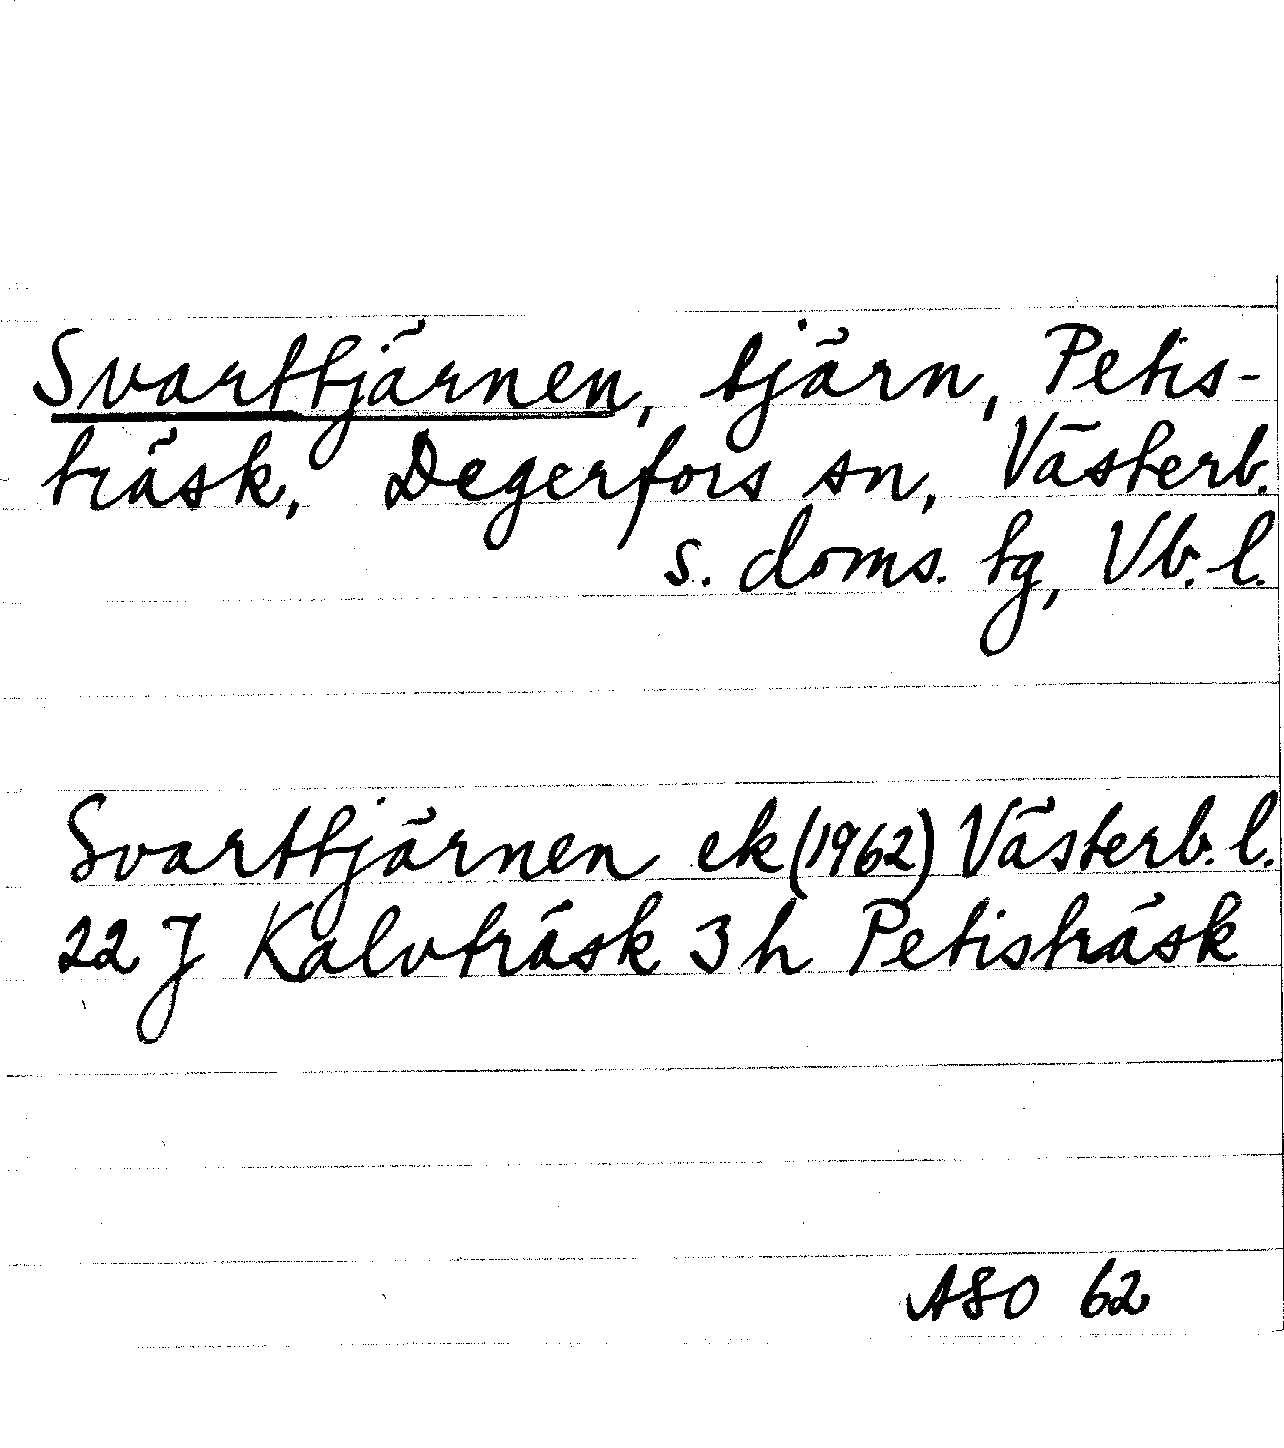 Svarttjärnen, tjärn, Petis-
träsk, Degerfors sn, Västerb.
s. doms. tg, Vb. l.
Svarttjärnen ek (1962) Västerb. l.
22 J Kalvträsk 3 h Petisträsk
ASO 62